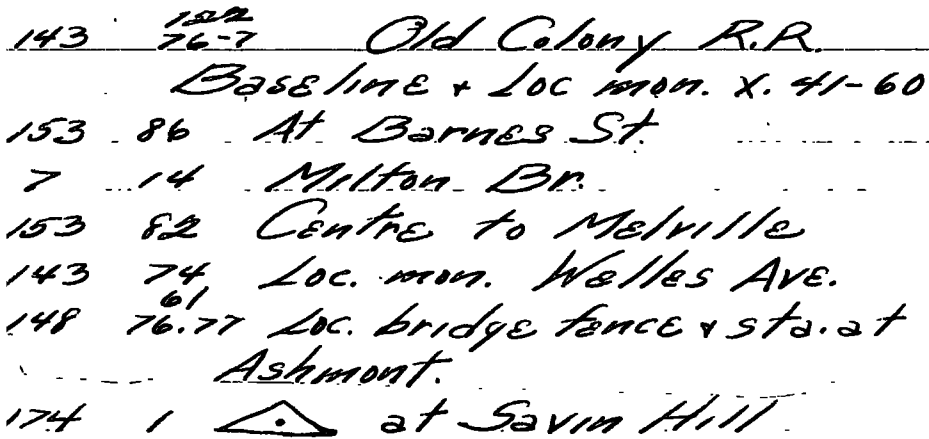 143 122 76-7 Old Colony R.R.
Baseline + Loc mon. X. 41-60
153 86 At Barnes St.
7 14 Milton Br.
153 82 Centre to Melville
143 74 Loc. mon. Welles Ave.
148 61 76.77 Loc. bridge fence + sta. at
Ashmont.
174 1 at Savin Hill